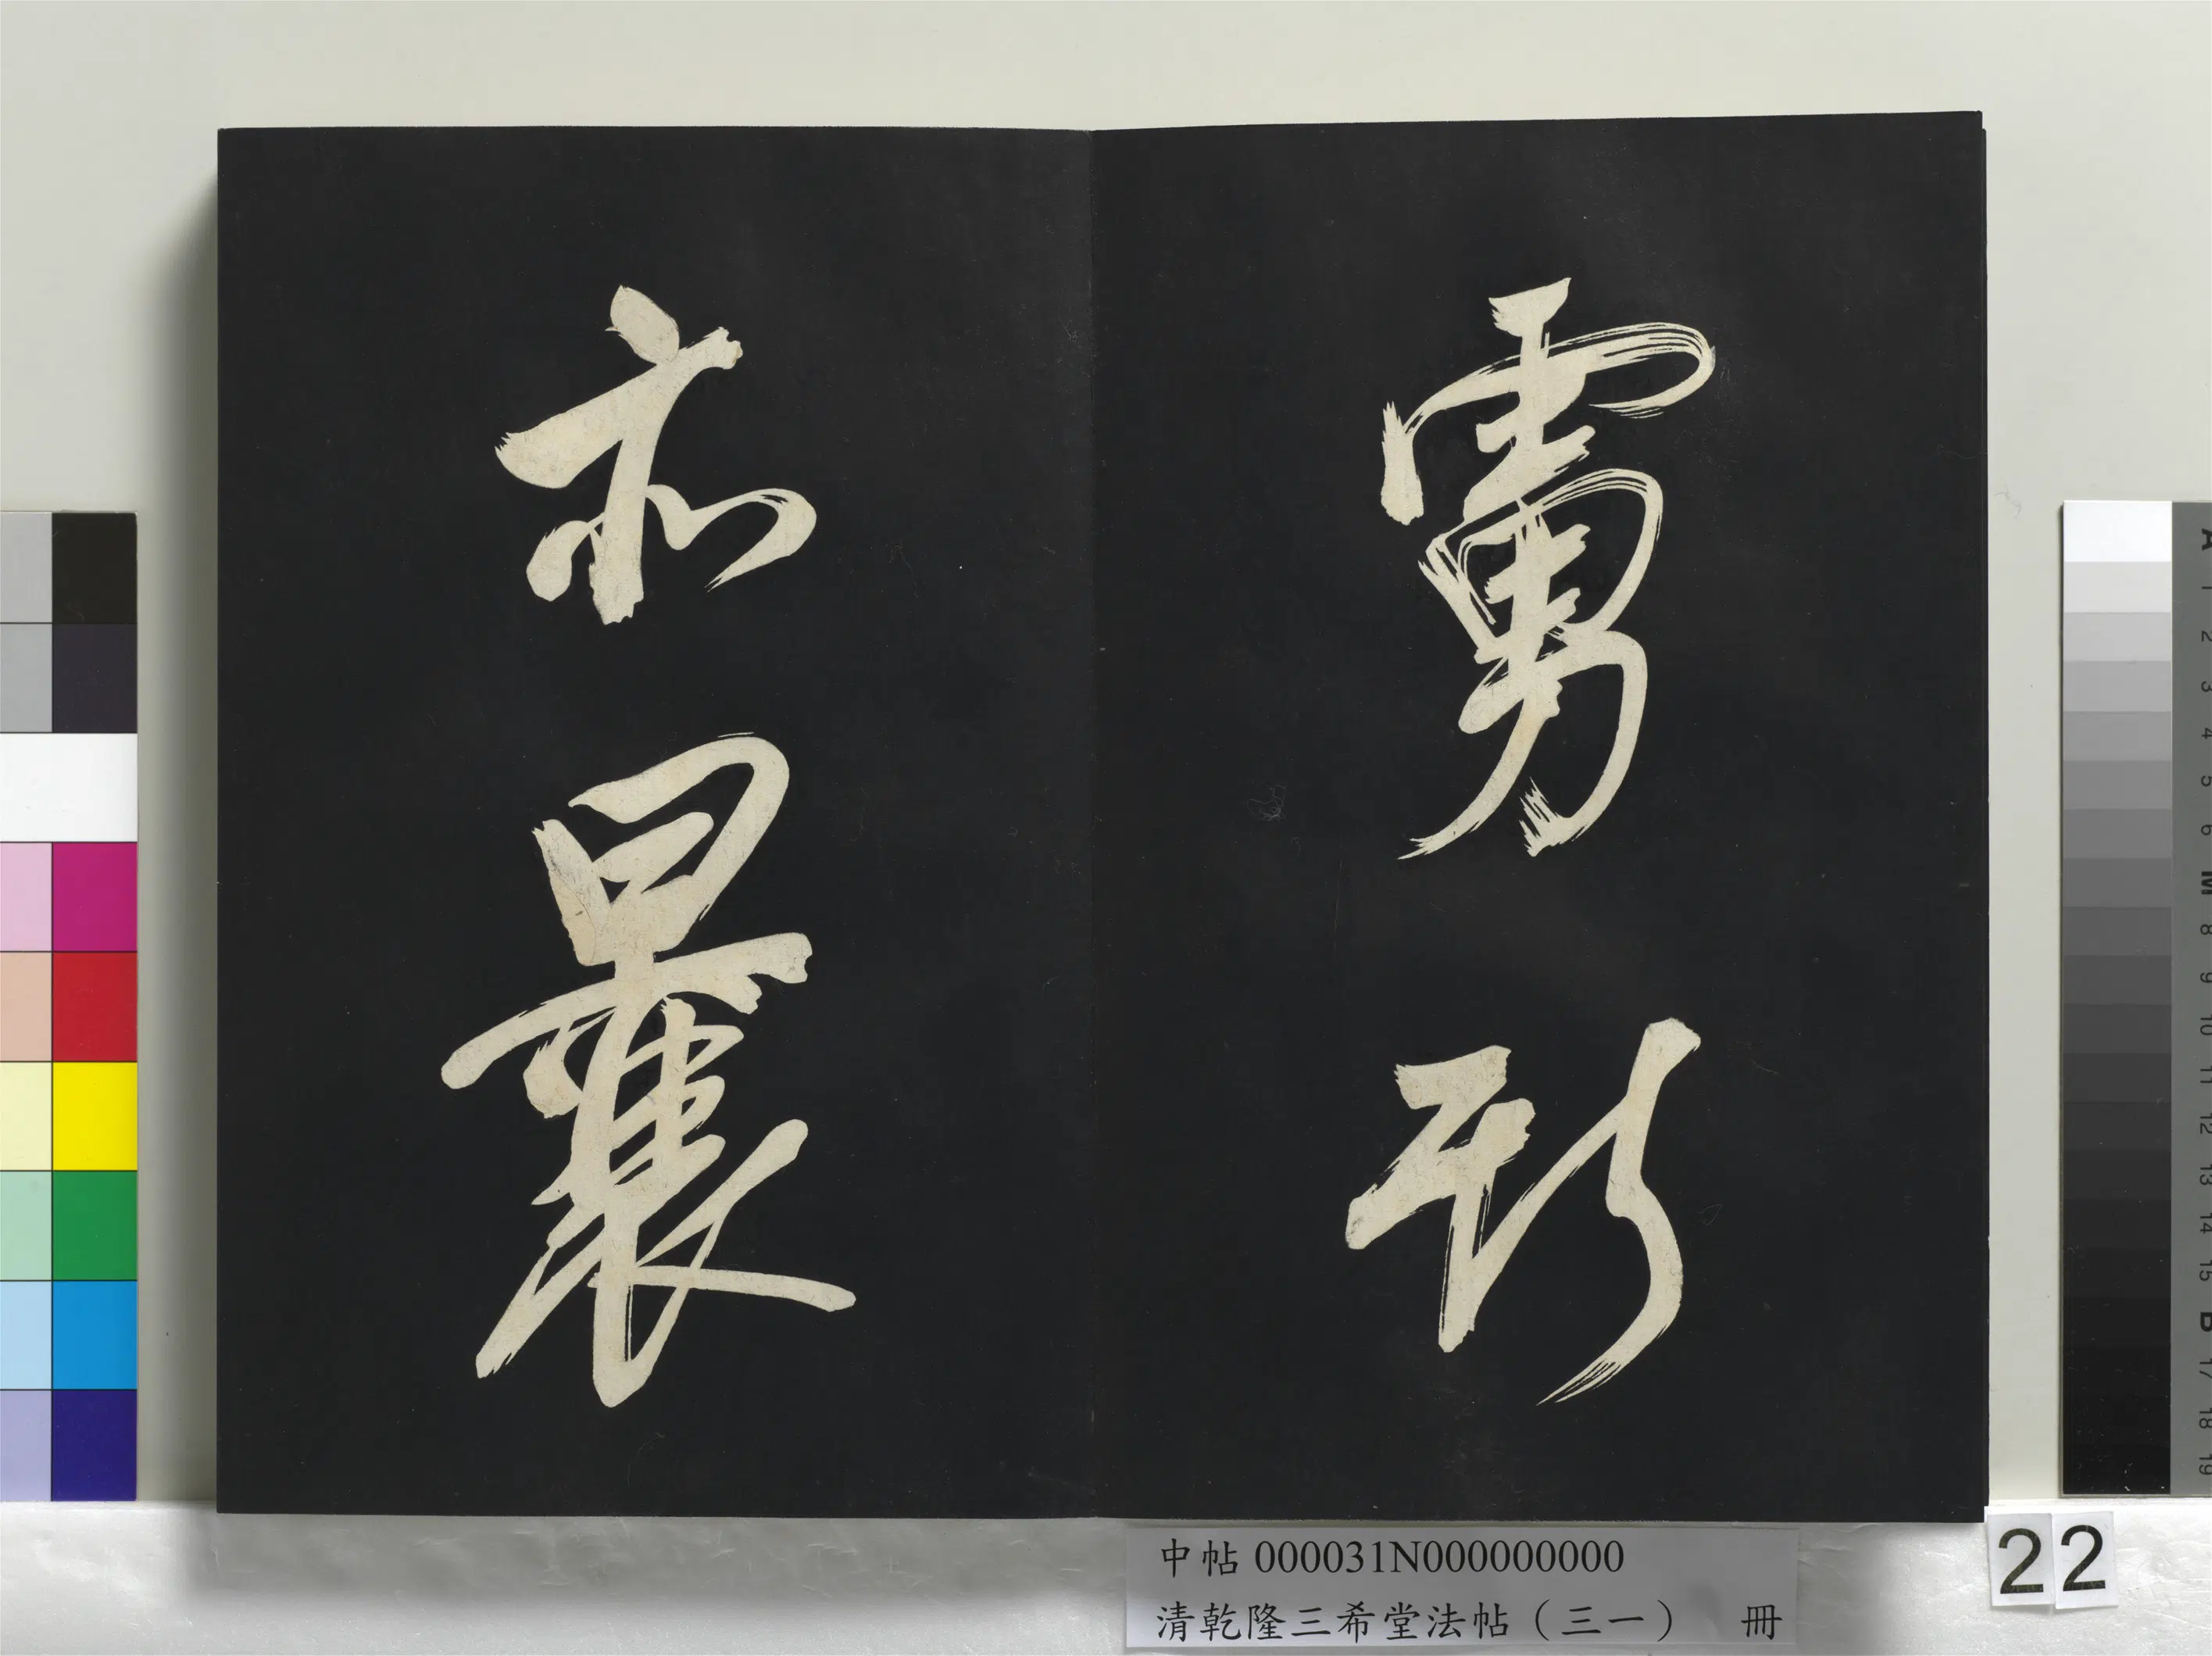 虜形
亦曩
中帖 000031N000000000
清乾隆三希堂法帖（三一） 冊
22
A 1 2 3 4 5 6 M 8 9 10 11 12 13 14 15 B 17 18 19